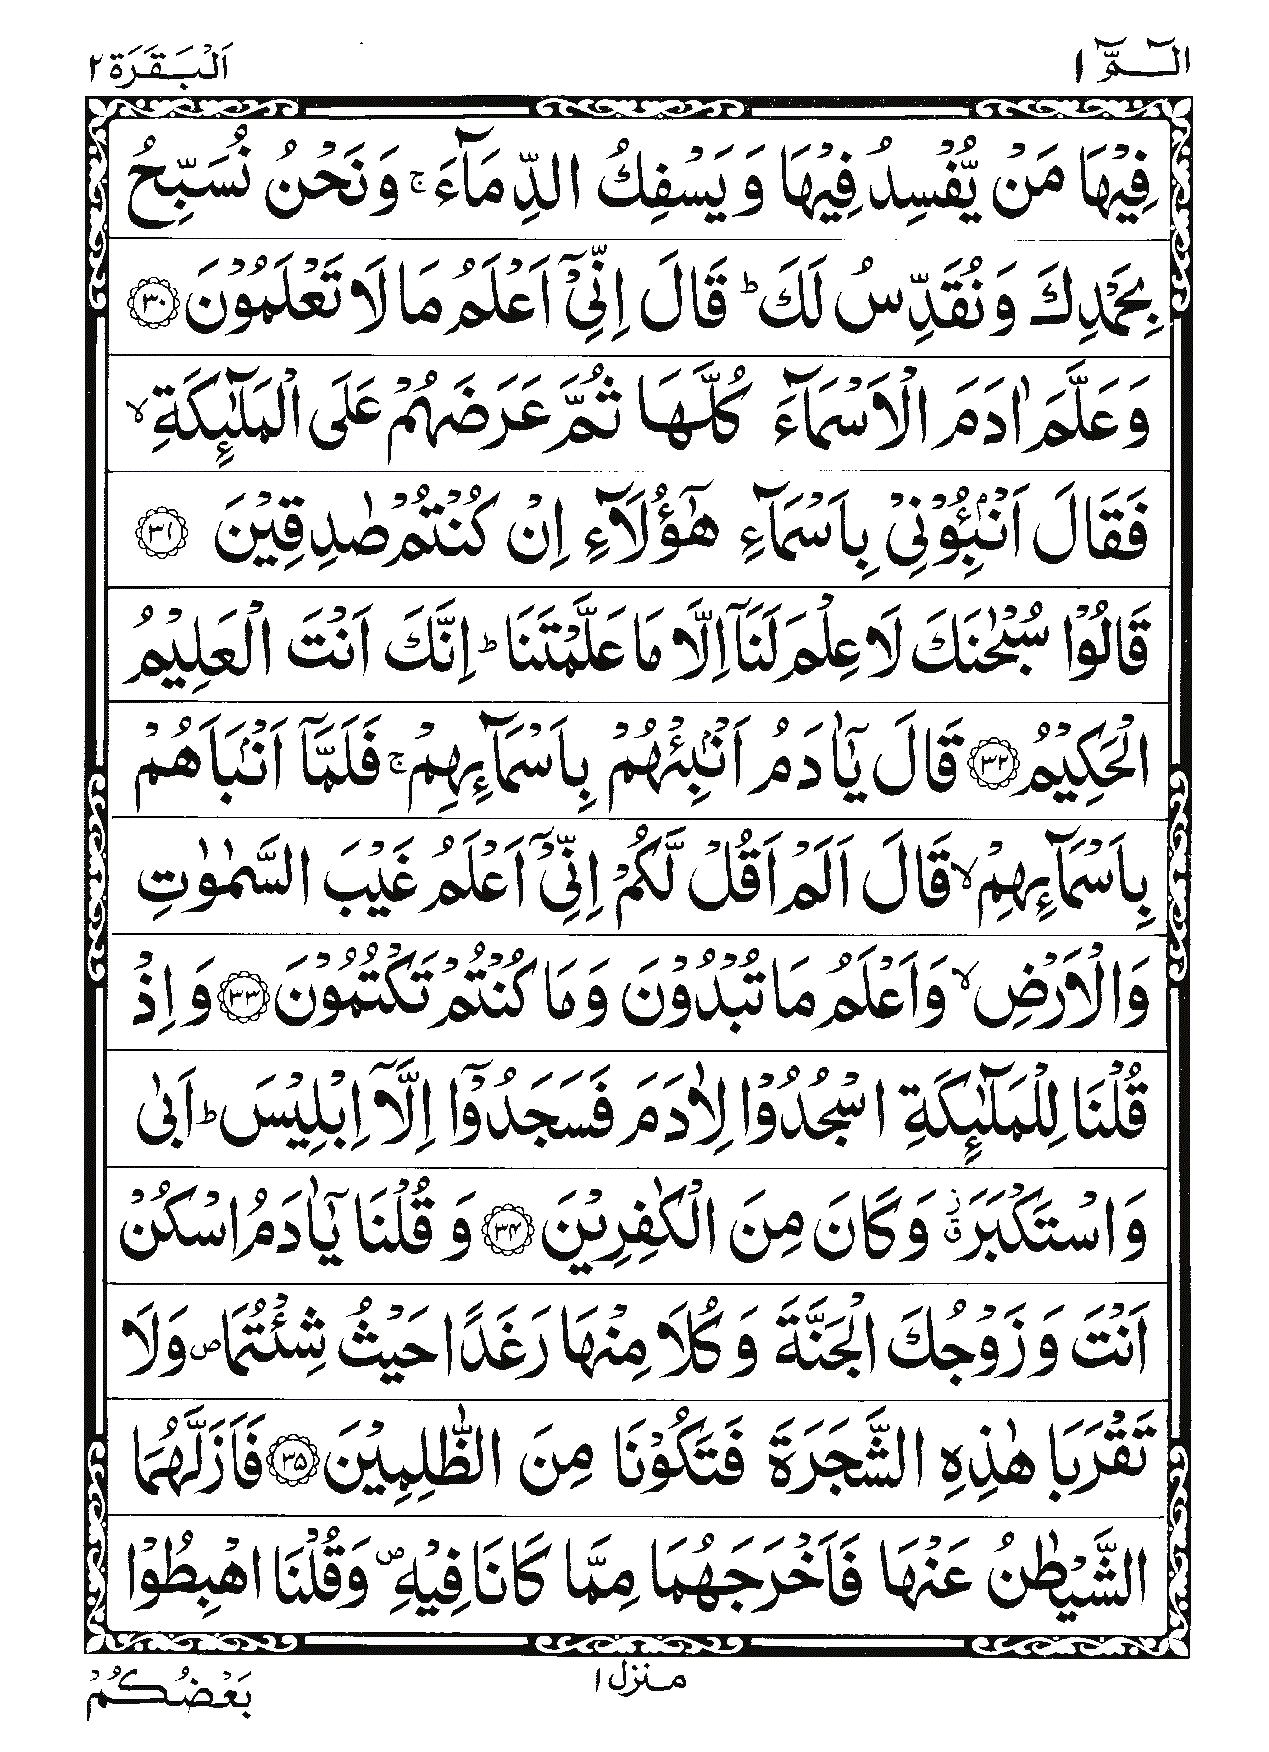 الٓـمّٓ ١
اَلْبَقَرَة ٢
فِیْهَا مَنْ یُّفْسِدُ فِیْهَا وَ یَسْفِكُ الدِّمَآءَ ۚ وَ نَحْنُ نُسَبِّحُ
بِحَمْدِكَ وَ نُقَدِّسُ لَكَ ؕ قَالَ اِنِّیْۤ اَعْلَمُ مَا لَا تَعْلَمُوْنَ ۳۰
وَ عَلَّمَ اٰدَمَ الْاَسْمَآءَ كُلَّهَا ثُمَّ عَرَضَهُمْ عَلَی الْمَلٰٓىِٕكَةِ ۙ
فَقَالَ اَنْۢبِـُٔوْنِیْ بِاَسْمَآءِ هٰۤؤُلَآءِ اِنْ كُنْتُمْ صٰدِقِیْنَ ۳۱
قَالُوْا سُبْحٰنَكَ لَا عِلْمَ لَنَاۤ اِلَّا مَا عَلَّمْتَنَا ؕ اِنَّكَ اَنْتَ الْعَلِیْمُ
الْحَكِیْمُ ۳۲ قَالَ یٰۤاٰدَمُ اَنْۢبِئْهُمْ بِاَسْمَآىِٕهِمْ ۚ فَلَمَّاۤ اَنْۢبَاَهُمْ
بِاَسْمَآىِٕهِمْ ۙ قَالَ اَلَمْ اَقُلْ لَّكُمْ اِنِّیْۤ اَعْلَمُ غَیْبَ السَّمٰوٰتِ
وَ الْاَرْضِ ۙ وَ اَعْلَمُ مَا تُبْدُوْنَ وَ مَا كُنْتُمْ تَكْتُمُوْنَ ۳۳ وَ اِذْ
قُلْنَا لِلْمَلٰٓىِٕكَةِ اسْجُدُوْا لِاٰدَمَ فَسَجَدُوْۤا اِلَّاۤ اِبْلِیْسَ ؕ اَبٰی
وَ اسْتَكْبَرَ ۗ٘ وَ كَانَ مِنَ الْكٰفِرِیْنَ ۳۴ وَ قُلْنَا یٰۤاٰدَمُ اسْكُنْ
اَنْتَ وَ زَوْجُكَ الْجَنَّةَ وَ كُلَا مِنْهَا رَغَدًا حَیْثُ شِئْتُمَا ۪ وَ لَا
تَقْرَبَا هٰذِهِ الشَّجَرَةَ فَتَكُوْنَا مِنَ الظّٰلِمِیْنَ ۳۵ فَاَزَلَّهُمَا
الشَّیْطٰنُ عَنْهَا فَاَخْرَجَهُمَا مِمَّا كَانَا فِیْهِ ۪ وَ قُلْنَا اهْبِطُوْا
منزل ١
بَعْضُكُمْ